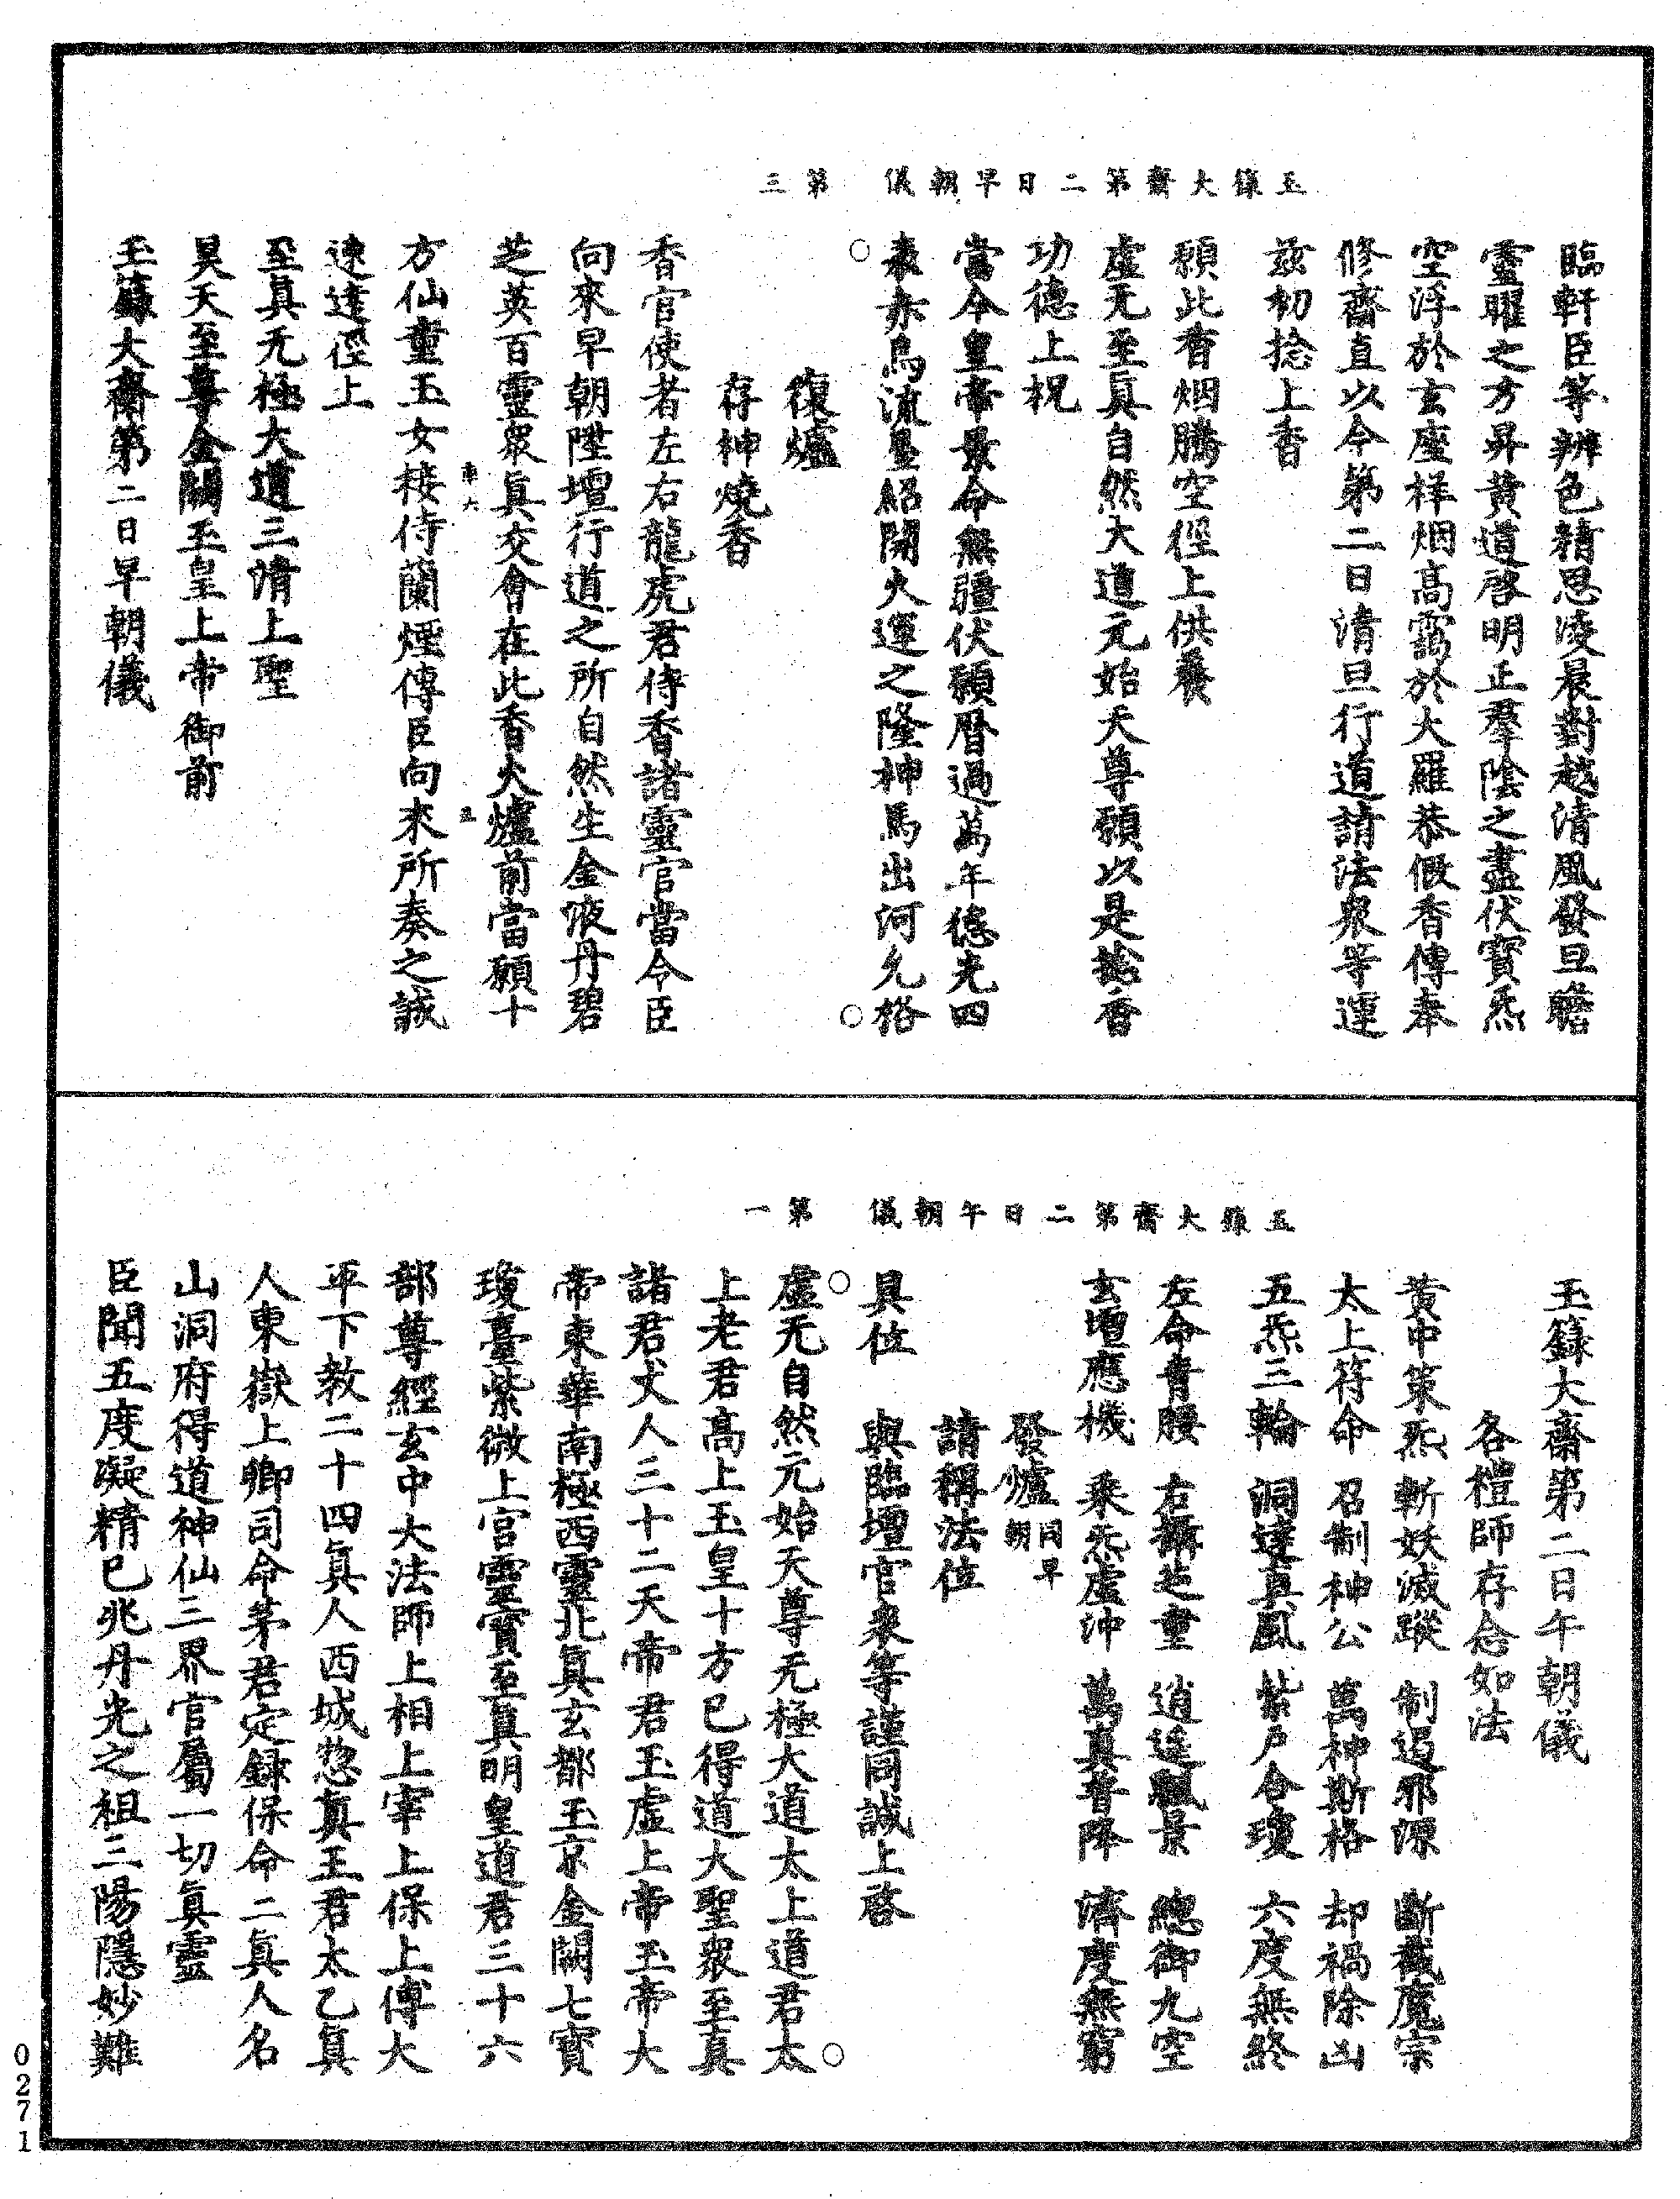 玉籙大齋第二日早朝儀　第三
臨軒臣等辨色精思凌晨對越清風發旦瞻
靈曜之方昇黃道啓明正羣陰之盡伏寶炁
空浮於玄座祥烟高靄於大羅恭假香傳奉
修齋直以今第二日清旦行道請法衆等運
茲初捻上香
願此香烟騰空徑上供養
虛无至真自然大道元始天尊願以是捻香
功德上祝
當今皇帝景命無疆伏願曆過萬年德光四
表赤烏流星紹開火運之隆神馬出河允格
復爐
存神燒香
香官使者左右龍虎君侍香諸靈官當令臣
向來早朝陞壇行道之所自然生金液丹碧
芝英百靈衆真交會在此香火爐前當願十
方仙童玉女接侍蘭煙傳臣向來所奏之誠
速達徑上
至真无極大道三清上聖
昊天至尊金闕玉皇上帝御前
玉籙大齋第二日早朝儀
玉籙大齋第二日午朝儀　第一
玉籙大齋第二日午朝儀
各禮師存念如法
黃中策炁　斬妖滅蹤　制遏邪源　斷截魔宗
太上符命　召制神公　萬神斯格　却禍除凶
五炁三輪　洞達真風　紫戶合瓊　六度無終
左命青腰　右攝芝童　逍遥飆景　總御九空
玄壇應機　乘炁虛沖　萬真普降　濟度無窮
發爐同早朝
請稱法位
具位　與臨壇官衆等謹同誠上啓
虛无自然元始天尊无極大道太上道君太
上老君高上玉皇十方已得道大聖衆至真
諸君丈人三十二天帝君玉虛上帝玉帝大
帝東華南極西靈北真玄都玉京金闕七寶
瓊臺紫微上宮靈寶至真明皇道君三十六
部尊經玄中大法師上相上宰上保上傅大
平下教二十四真人西城惣真王君太乙真
人東嶽上卿司命茅君定錄保命二真人名
山洞府得道神仙三界官屬一切真靈
臣聞五度凝精已兆丹光之祖三陽隱妙難
0271